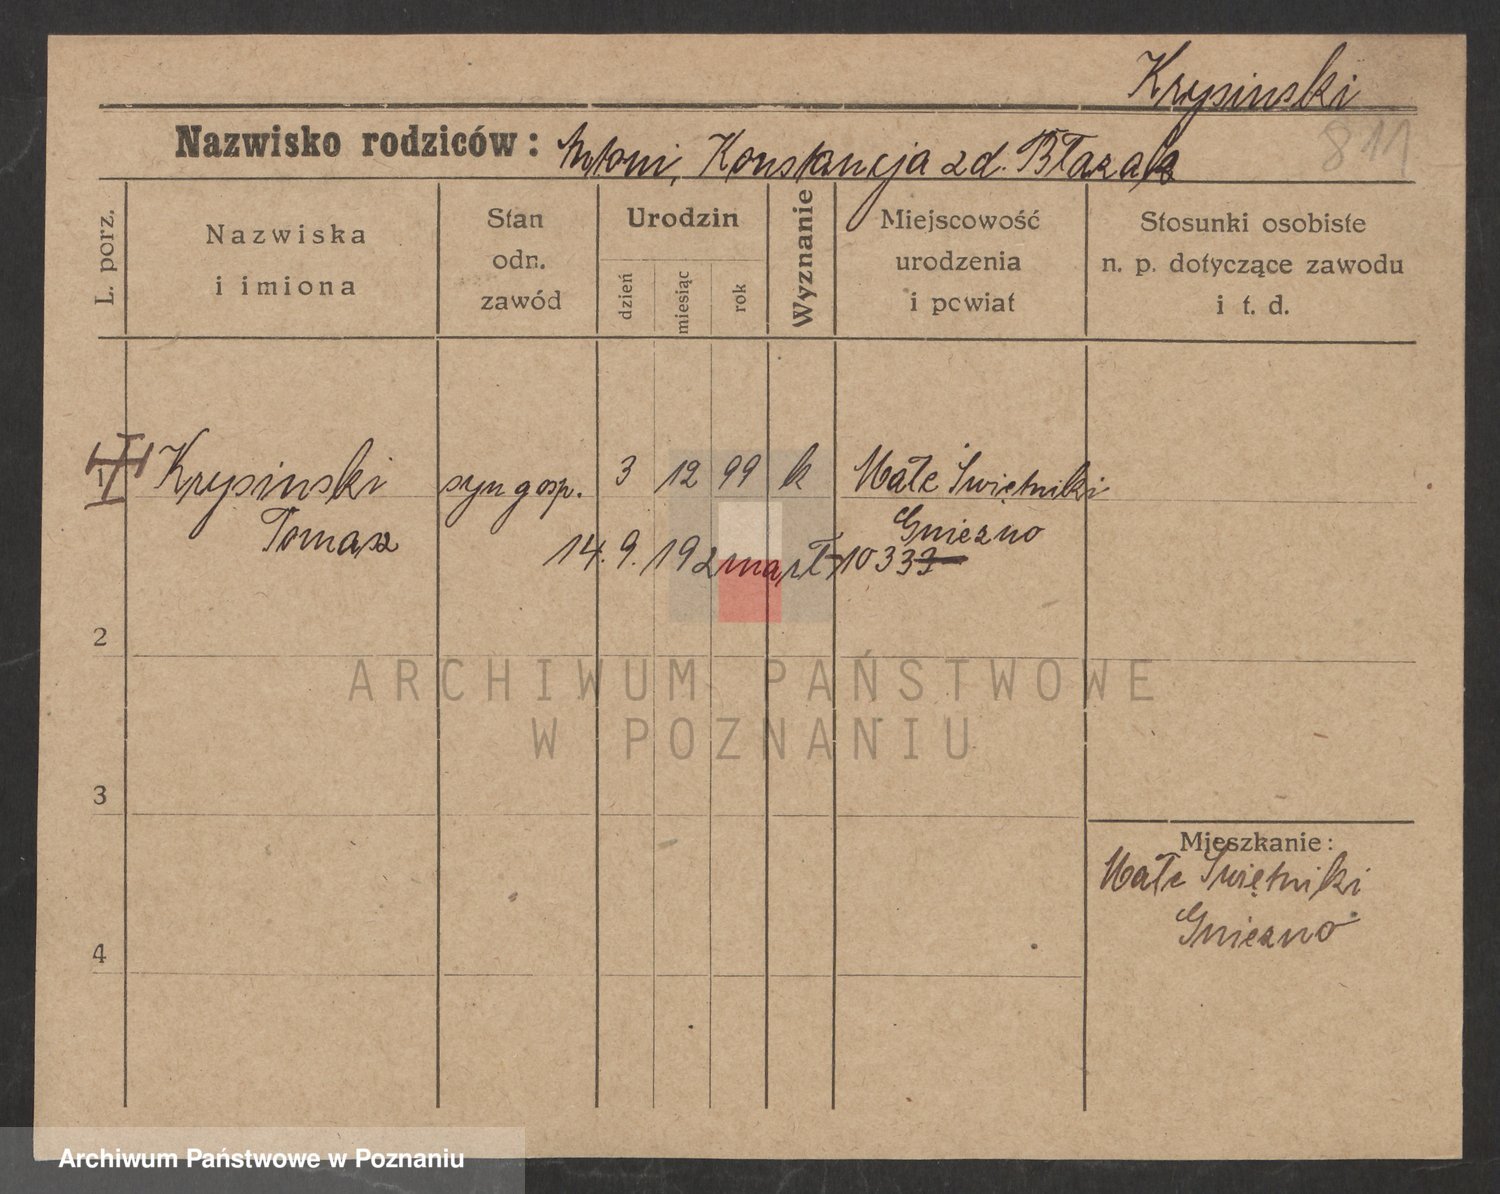 Krysinski
811
Nazwisko rodziców: Antoni, Konstancja zd. Błazak
L. porz.
Nazwiska
i imiona
Stan
odn.
zawód
Urodzin
dzień
miesiąc
rok
Wyznanie
Miejscowość
urodzenia
i pcwiat
Stosunki osobiste
n. p. dotyczące zawodu
i t. d.
1 Krysinski syn gosp. 3 12 99 k Małe Świętniki
Tomasz Gniezno
14. 9. 192 marł 10333
2
ARCHIWUM PAŃSTWOWE
W POZNANIU
3
Mieszkanie:
Małe Świętniki
Gniezno
4
Archiwum Państwowe w Poznaniu